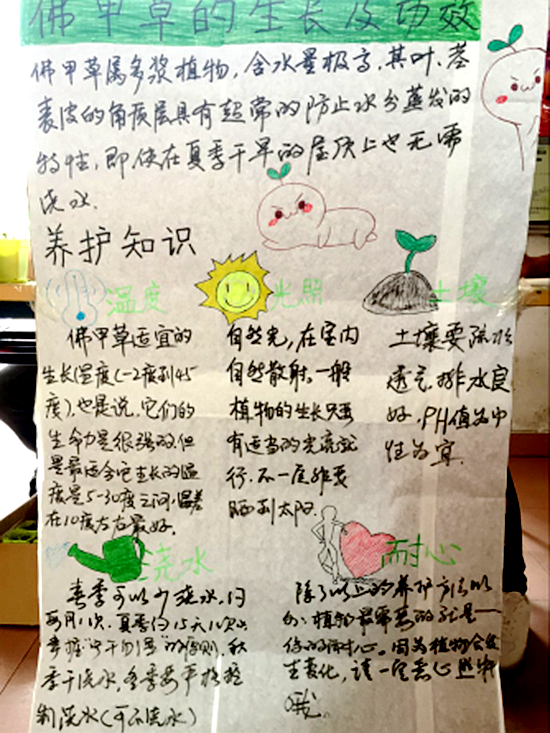 佛甲草的生长及功效
佛甲草属多浆植物,含水量极高,其叶、茎
表皮的角质层具有超常的防止水分蒸发的
特性,即使在夏季干旱的屋顶上也无需
浇水.
养护知识
温度
佛甲草适宜的
生长温度(-2度到45
度),也是说,它们的
生命力是很强的,但
是最适合它生长的温
度是5-30度之间,温差
在10度左右最好.
光照
自然光,在室内
自然散射,一般
植物的生长只要
有适当的光流就
行,不一定非要
晒到太阳.
土壤
土壤要疏松
透气,排水良
好,PH值为中
性为宜.
浇水
春季可以少浇水,约
每月1次,夏季约15天1次,
掌握"干的湿"的原则,秋
季干浇水,冬季要严格控
制浇水(可不浇水)
耐心
除了以上的养护方法以
外,植物最需要的就是一
份的耐心.因为植物会发
生变化,请一定要心照料
哦.